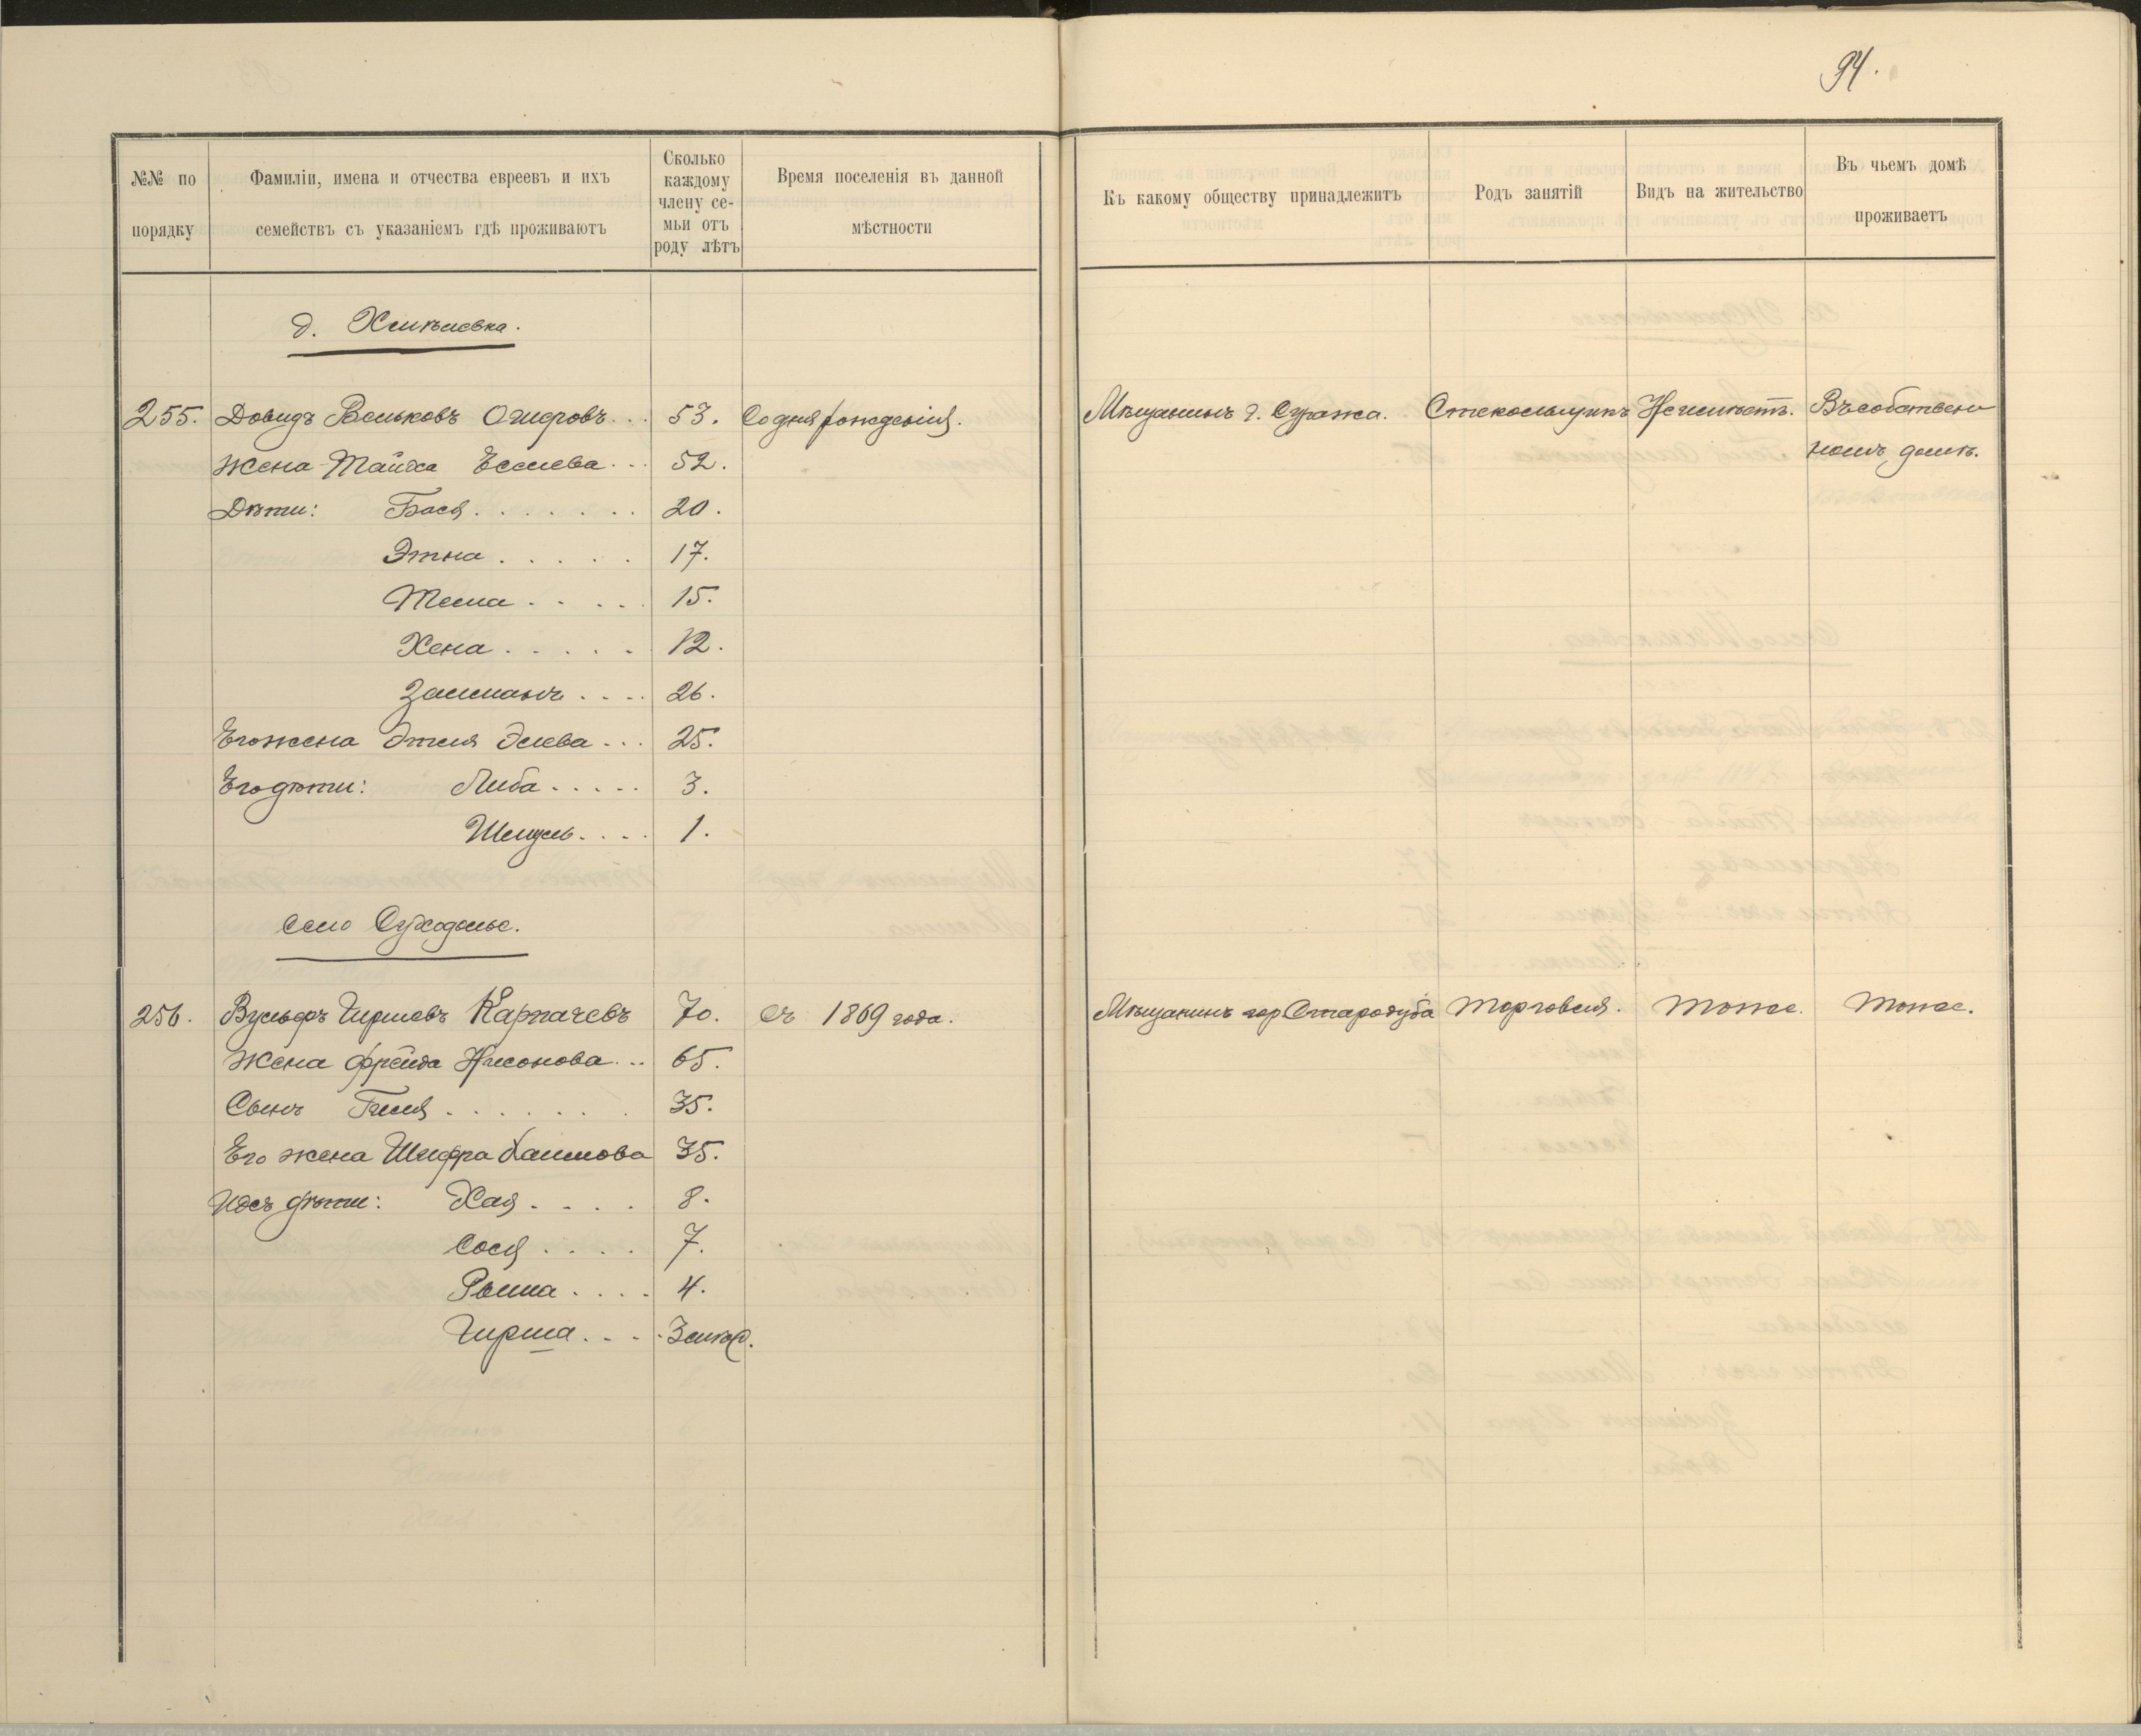 94.
№№ по порядку
Фамиліи, имена и отчества евреевъ и ихъ семействъ съ указаніемъ гдѣ проживаютъ
Сколько каждому члену се-
мьи отъ роду лѣтъ
Время поселенія въ данной мѣстности
Къ какому обществу принадлежитъ
Родъ занятій
Видъ на жительство
Въ чьемъ домѣ проживаетъ
д.
255. Довидъ Вельковъ 53. Со дня рожденія. Мѣщанинъ г. Суража. Стекольщикъ Неимѣетъ. Въ собствен
номъ домѣ.
Жена 52.
Дѣти: Бася 20.
Этна 17.
15.
Хена 12.
Залманъ 26.
Его жена Этля 25.
Его дѣти: Либа 3.
1.
Село Суходолье.
256. Вульфъ Гиршовъ Карпачевъ 70. съ 1869 года. Мѣщанинъ гор. Стародуба Торговля. Тоже. Тоже.
Жена Фрейда Нисонова 65.
Сынъ 35.
Его жена Шифра Хаимова 35.
Ихъ дѣти: Хая 8.
Сося 7.
4.
Гирша 3 мѣс.